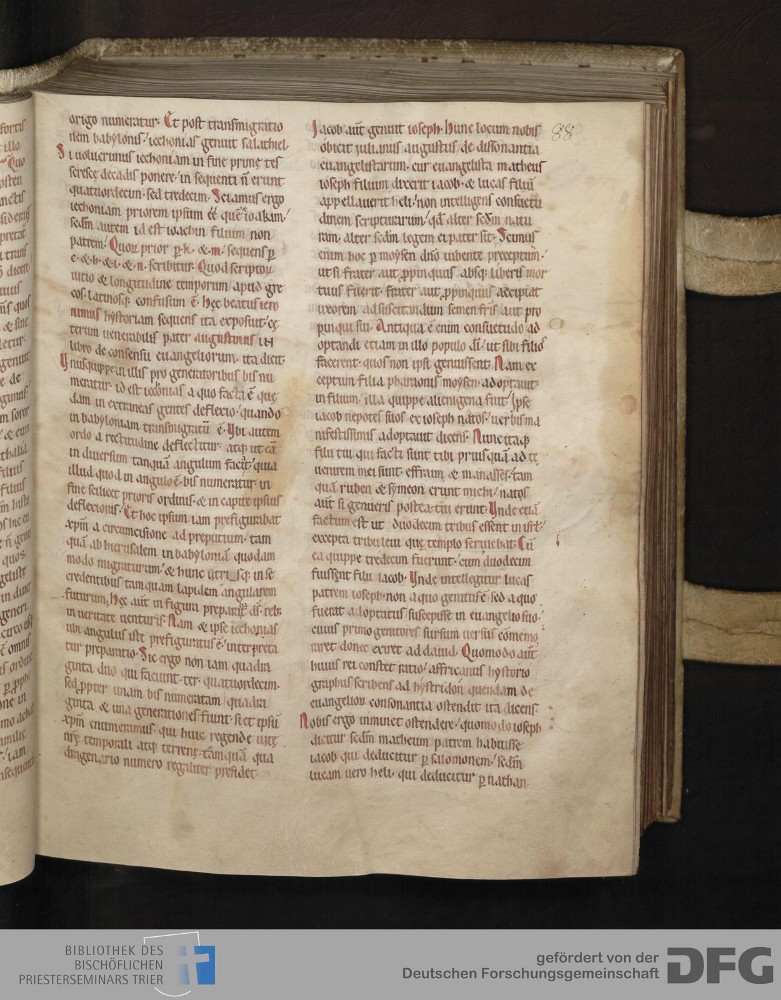 origo numeratur. Et post transmigratio
nem babylonis. iechonias genuit salathiel.
Si uoluerimus iechoniam in fine prime tes
serescedecadis ponere. in sequenti ñ erunt
quatuordecim. sed tredecim. Sciamus ergo
iechoniam priorem ipsum eē quē ioakim.
scdm autem id est ioachin filium non
patrem. Quor prior p k. & m. sequens p
c. & h. & i. & n. scribitur. Quod scriptor
uitio & longitudine temporum apud gre
cos. latinosq; confusum ē. Hęc beatus iero
nimus hystoriam sequens ita exposuit. ce
terum uenerabilis pater augustinus in
libro de consensu euangeliorum. ita dicit.
Unus quippe in illis pro generatoribus bis nu
meratur. id est iechonias a quo facta ē quę
dam in extraneas gentes deflecio. quando
in babyloniam transmigratū ē. Ubi autem
ordo a rectitudine deflectitur. atq; ut eā
in diuersum tanquā angulum facit. qua
illud quod in angulo ē. bis numeratur. in
fine scilicet prioris ordinis. & in capite ipsius
deflexionis. Et hoc ipsum iam prefigurabat
xpm a circumcisione ad preputium. tam
quā ab hierusalem in babyloniā quodam
modo migraturum. & hunc utrisq; in se
credentibus tam quam lapidem angularem
futurum. Hęc aūt in figura preparaᷓ ds reb;
in ueritate uenturis. Nam & ipse iechonias
ubi angulus iste prefiguratus ē. interpreta
tur preparatio. Sic ergo non iam quadra
ginta duo qui faciunt. ter. quatuordecim.
sed ppter unam bis numeratam quadra
ginta & una generationes fiunt. si et ipsū
xpm enumerimus. qui huic regende uitę
nrę temporali atq; terrenę. tamquā qua
dragenario numero regaliter presidet.
Iacob aūt genuit ioseph. Hunc locum nobis
obiecit iulianus augustus de dissonantia
euangelistarum. cur euangelista matheus
ioseph filium dixerit iacob. & lucas filiū
appellauerit heli. non intelligens consuetu
dinem scripturarum. qd alter scdm natu
ram. alter scdm legem ei pater sit. Scimus
enim hoc p moysen dño iubente preceptum.
ut si frater aut ppinquus absq; liberis mor
tuus fuerit. frater aut ppinquus accipiat
uxorem. ad suscitandum semen frīs aut pro
pinqui sui. Antiqua ē enim consuetudo ad
optandi etiam in illo populo dī. ut sibi filios
facerent. quos non ipsi genuissent. Nam ex
ceptum filia pharaonis moysen adoptauit
in filium. illa quippe alienigena fuit. Ipse
iacob nepotes suos ex ioseph natos. uerbis ma
nifestissimis adoptauit dicens. Nunc itaq;
filii tui qui facti sunt tibi priusquā ad te
uenirem mei sunt. effraim & manasses. tam
quā ruben & symeon erunt michi. natos
aūt si genueris postea tui erunt. Unde etiā
factum est ut duodecim tribus essent in isrl.
excepta tribu leui quę templo seruiebat. Cū
ea quippe tredecim fuerunt. cum duodecim
fuissent filii iacob. Unde intellegitur lucas
patrem ioseph. non a quo genitus ē. sed a quo
fuerat adoptatus suscepisse in euangelio suo.
cuius progenitores sursum uersus cōmemo
raret. donec exiret ad dauid. Quomodo aūt
huius rei constet ratio. affricanus hystorio
graphus scribens ad hystridon quendam de
euangelior consonantia ostendit ita dicens.
Nobis ergo inminet ostendere. quomodo ioseph
dicitur scdm matheum patrem habuisse
iacob qui deducitur p salomonem. scdm
lucam uero heli. qui deducitur p nathan
88
BIBLIOTHEK DES
BISCHÖFLICHEN
PRIESTERSEMINARS TRIER
gefördert von der
Deutschen Forschungsgemeinschaft
DFG